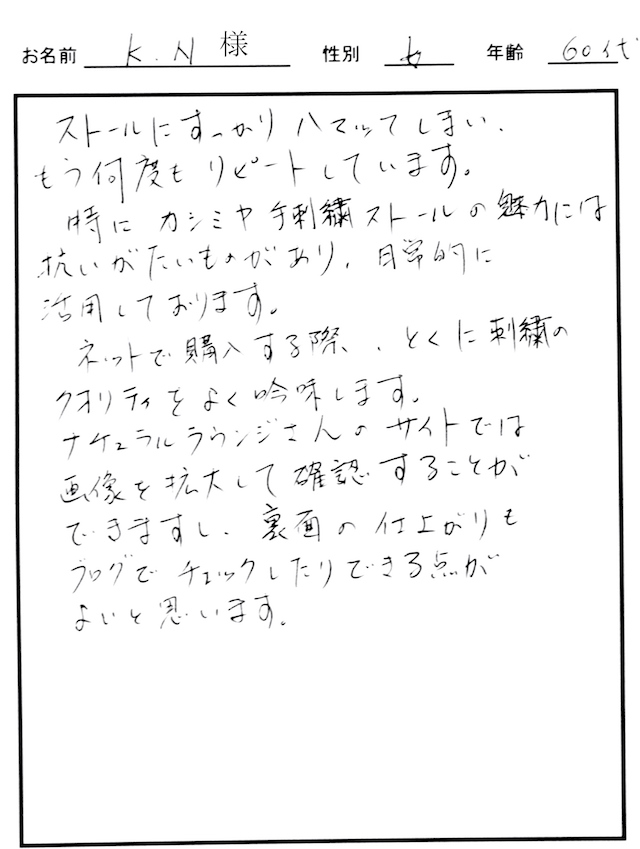 お名前 K.N 様 性別 女 年齢 60代
ストールにすっかりハマッてしまい、
もう何度もリピートしています。
時に カシミヤ手刺繍ストールの魅力には
抗いがたいものがあり、日常的に
活用しております。
ネットで購入する際、、とくに刺繍の
クオリティをよく吟味します。
ナチュラルラウンジさんのサイトでは
画像を拡大して確認することが
できますし、裏面の仕上がりも
ブログでチェックしたりできる点が
よいと思います。